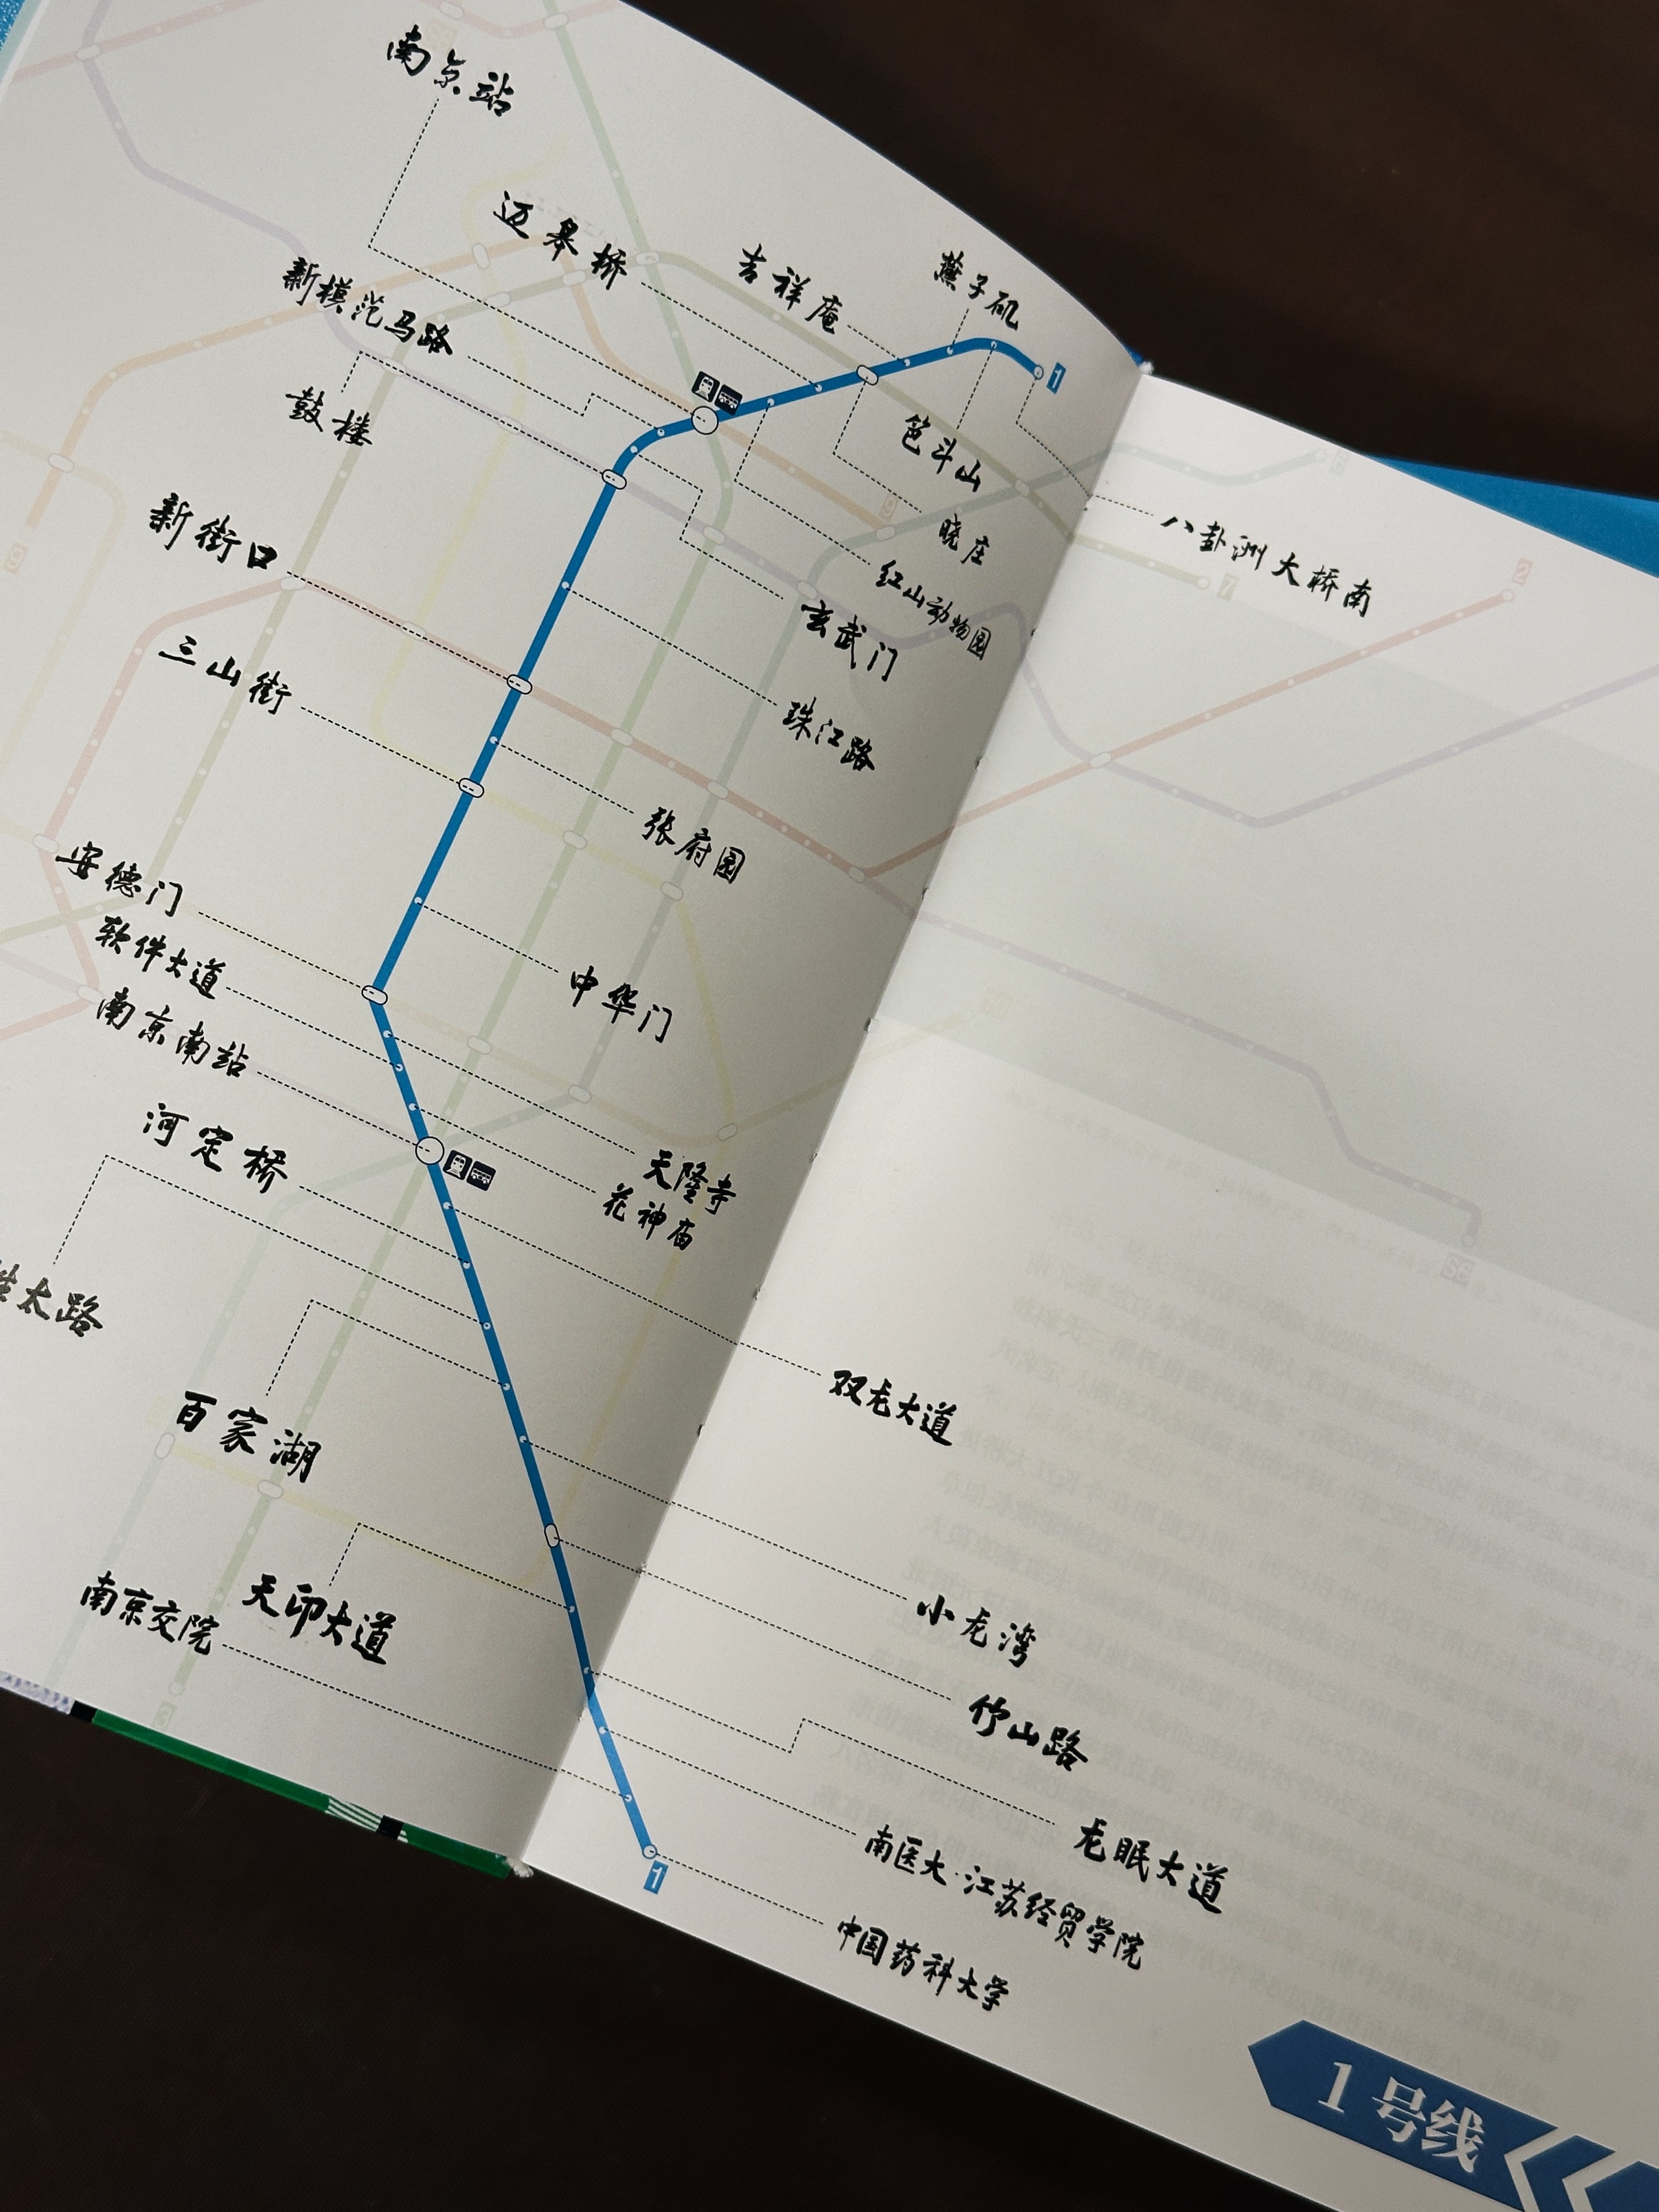 南京站
迈皋桥
吉祥庵
燕子矶
新模范马路
鼓楼
1
笆斗山
晓庄
八卦洲大桥南
红山动物园
新街口
玄武门
三山街
珠江路
张府园
安德门
软件大道
中华门
南京南站
天隆寺
花神庙
河定桥
太路
双龙大道
百家湖
小龙湾
天印大道
南京交院
竹山路
龙眠大道
南医大·江苏经贸学院
1
中国药科大学
1号线
2
7
9
9
3
S6